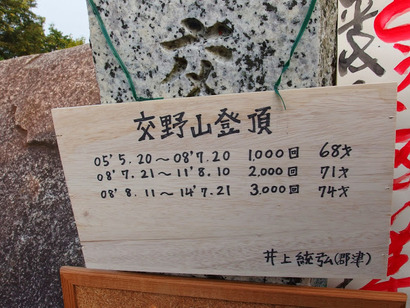 交野山登頂
05' 5.20〜08' 7.20 1,000回 68才
08' 7.21〜11' 8.10 2,000回 71才
08' 8.11〜14' 7.21 3,000回 74才
井上統弘(郡津)